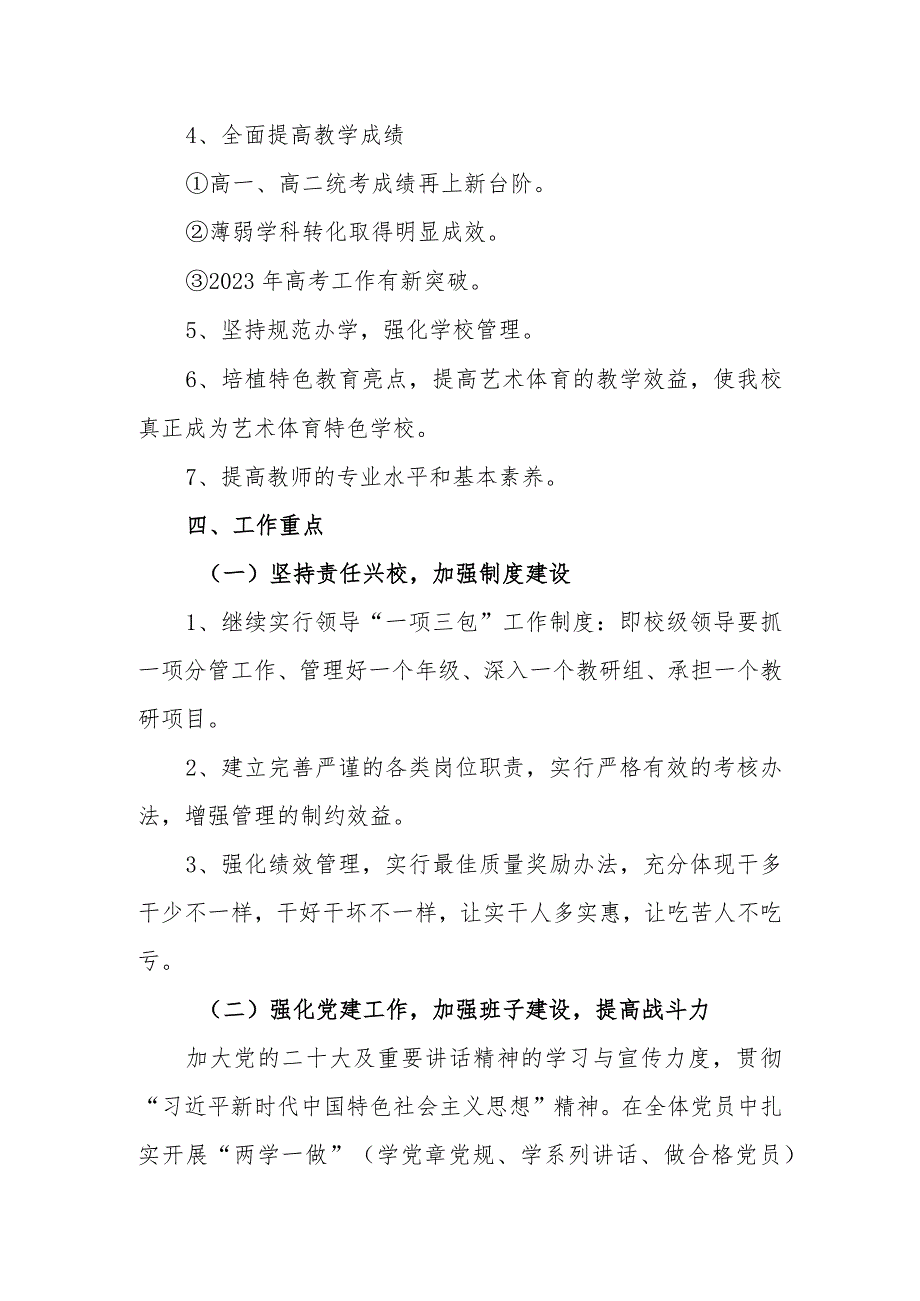 4、全面提高教学成绩
①高一、高二统考成绩再上新台阶。
②薄弱学科转化取得明显成效。
③2023 年高考工作有新突破。
5、坚持规范办学，强化学校管理。
6、培植特色教育亮点，提高艺术体育的教学效益，使我校
真正成为艺术体育特色学校。
7、提高教师的专业水平和基本素养。
四、工作重点
（一）坚持责任兴校，加强制度建设
1、继续实行领导“一项三包”工作制度：即校级领导要抓
一项分管工作、管理好一个年级、深入一个教研组、承担一个教
研项目。
2、建立完善严谨的各类岗位职责，实行严格有效的考核办
法，增强管理的制约效益。
3、强化绩效管理，实行最佳质量奖励办法，充分体现干多
干少不一样，干好干坏不一样，让实干人多实惠，让吃苦人不吃
亏。
（二）强化党建工作，加强班子建设，提高战斗力
加大党的二十大及重要讲话精神的学习与宣传力度，贯彻
“习近平新时代中国特色社会主义思想”精神。在全体党员中扎
实开展“两学一做”（学党章党规、学系列讲话、做合格党员）